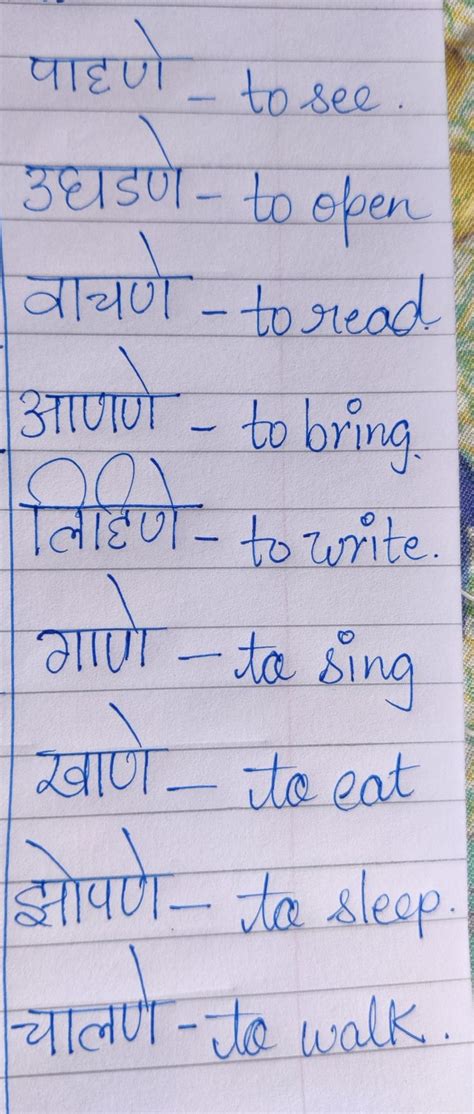 पाहणे - to see.
उघडणे - to open
वाचणे - to read.
आणणे - to bring.
लिहिणे - to write.
गाणे - to sing
खाणे - to eat
झोपणे - to sleep.
चालणे - to walk.